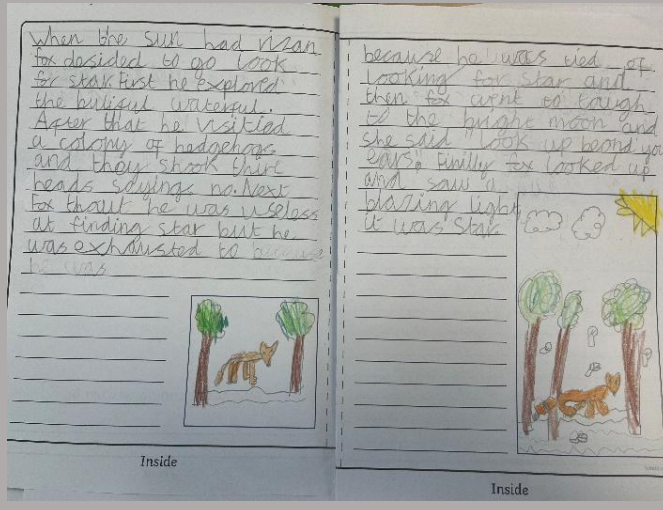 When the sun had rizan
fox desided to go look
for star. First he explored
the butiful waterful.
After that he visitied
a colony of hedgehogs
and they shook thire
heads sayings no. Next
fox thout he was useless
at finding star but he
was exhausted to because
he was
Inside
because he was tied of
looking for star and
then fox went to tough
to the bright moon and
she said "look up beond you
ears. Finilly fox looked up
and saw a
blazing light
it was Star
Inside